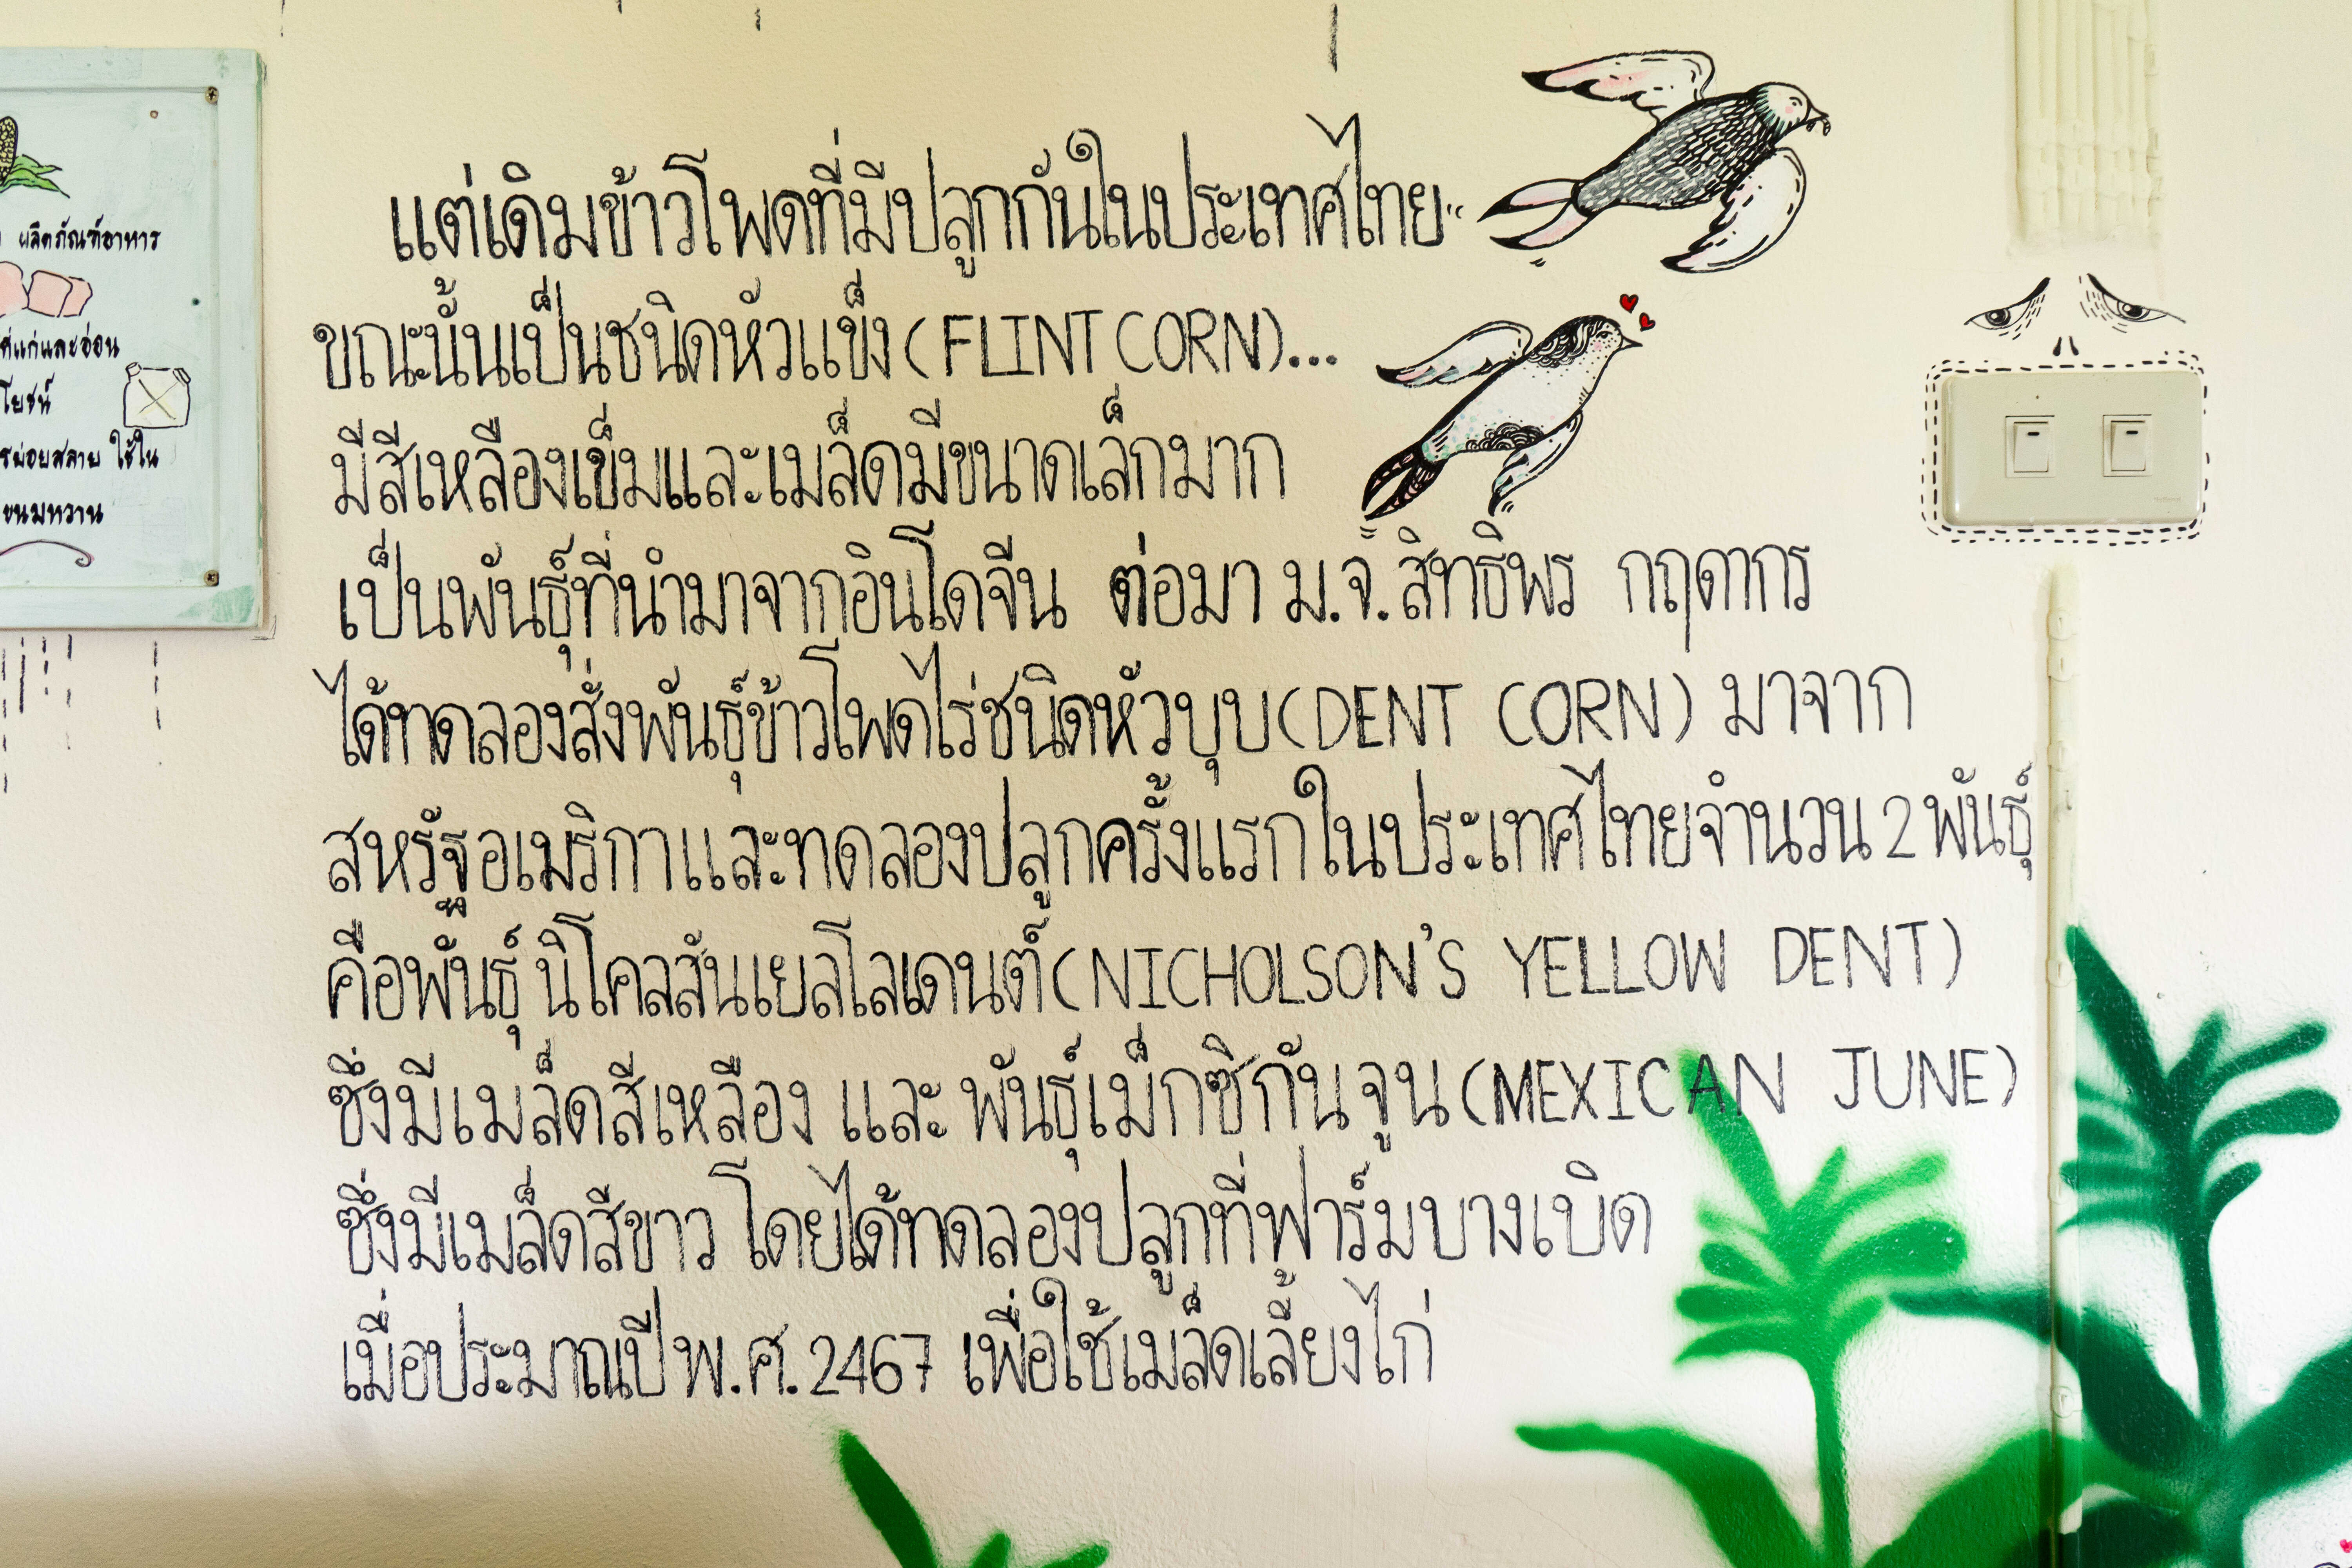 ผลิตภัณฑ์อาหาร
ที่แก่และอ่อน
โยชน์
รย่อยสลาย ใช้ใน
ขนมหวาน
แต่เดิมข้าวโพดที่มีปลูกกันในประเทศไทย..
ขณะนั้นเป็นชนิดหัวแข็ง(FLINT CORN)...
มีสีเหลืองเข็มและเมล็ดมีขนาดเล็กมาก
เป็นพันธุ์ที่นำมาจากอินโดจีน ต่อมา ม.จ.สิทธิพร กฤดากร
ได้ทดลองสั่งพันธุ์ข้าวโพดไร่ชนิดหัวบุบ(DENT CORN) มาจาก
สหรัฐอเมริกาและทดลองปลูกครั้งแรกในประเทศไทยจำนวน 2 พันธุ์
คือพันธุ์ นิโคลสันเยลโลเดนต์(NICHOLSON'S YELLOW DENT)
ซึ่งมีเมล็ดสีเหลือง และ พันธุ์เม็กซิกันจูน(MEXICAN JUNE)
ซึ่งมีเมล็ดสีขาว โดยได้ทดลองปลูกที่ฟาร์มบางเบิด
เมื่อประมาณปี พ.ศ. 2467 เพื่อใช้เมล็ดเลี้ยงไก่